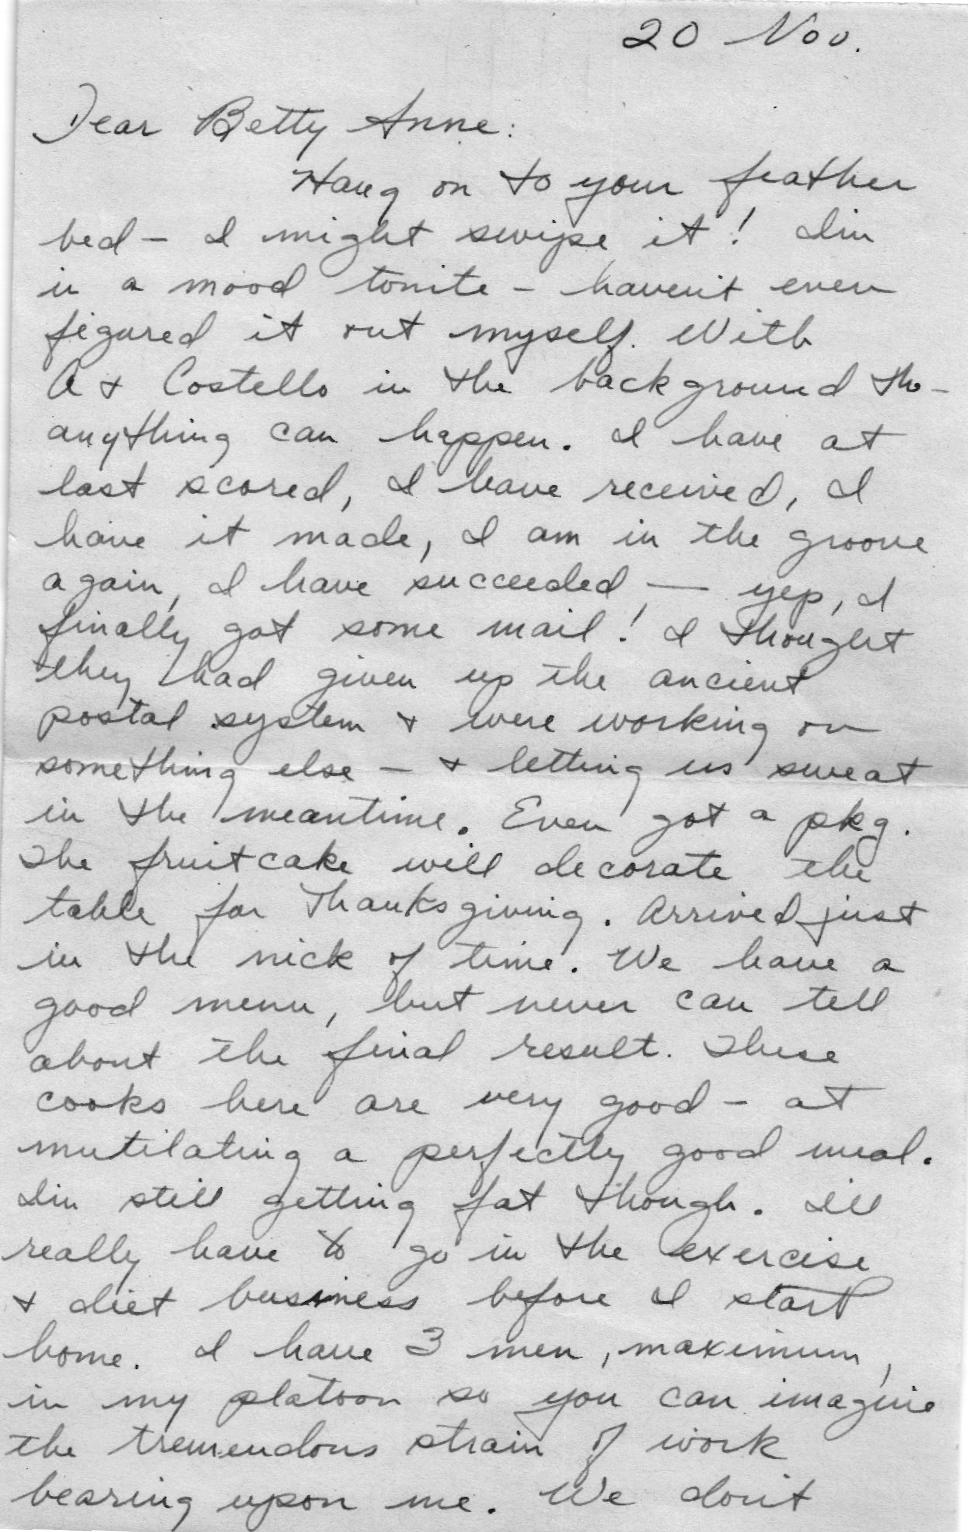 20 Nov.
Dear Betty Anne:
Hang on to your feather
bed – I might swipe it! I'm
in a mood tonite – haven't even
figured it out myself. With
A & Costello in the background tho –
anything can happen. I have at
last scored, I have received, I
have it made, I am in the groove
again, I have succeeded — yep, I
finally got some mail! I thought
they had given up the ancient
postal system & were working on
something else – & letting us sweat
in the meantime. Even got a pkg.
The fruitcake will decorate the
table for Thanksgiving. Arrived just
in the nick of time. We have a
good menu, but never can tell
about the final result. These
cooks here are very good – at
mutilating a perfectly good meal.
I'm still getting fat though. I'll
really have to go in the exercise
& diet business before I start
home. I have 3 men, maximum,
in my platoon so you can imagine
the tremendous strain of work
bearing upon me. We don't